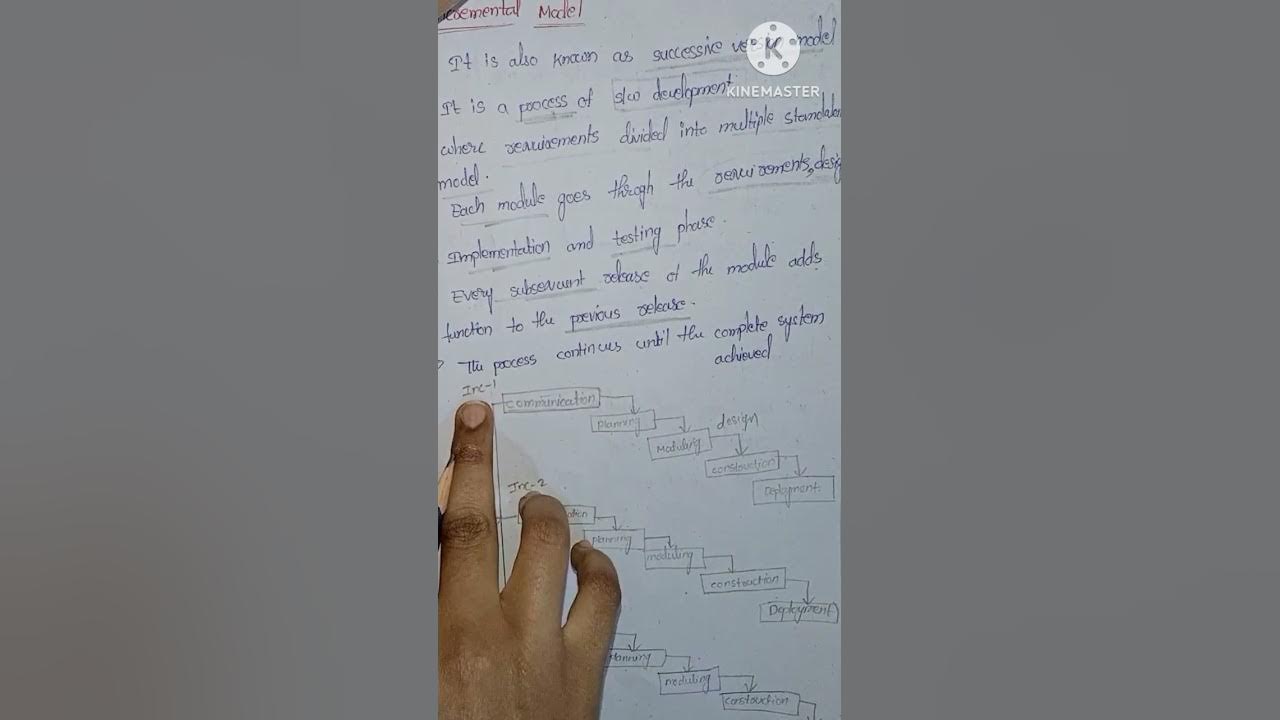 Model
It is also known as successive model
KINEMASTER
It is a process of s/w development
where requirements divided into multiple
model.
Each module goes throgh the requirements,
Implementation and testing phase.
Every subsequent release of the module adds
function to the previous release.
The process continues until the complete system
achieved
Inc-1
communication
planning
Moduling
design
construction
Deployment
Inc-2
planning
moduling
construction
Deployment
planning
moduling
construction